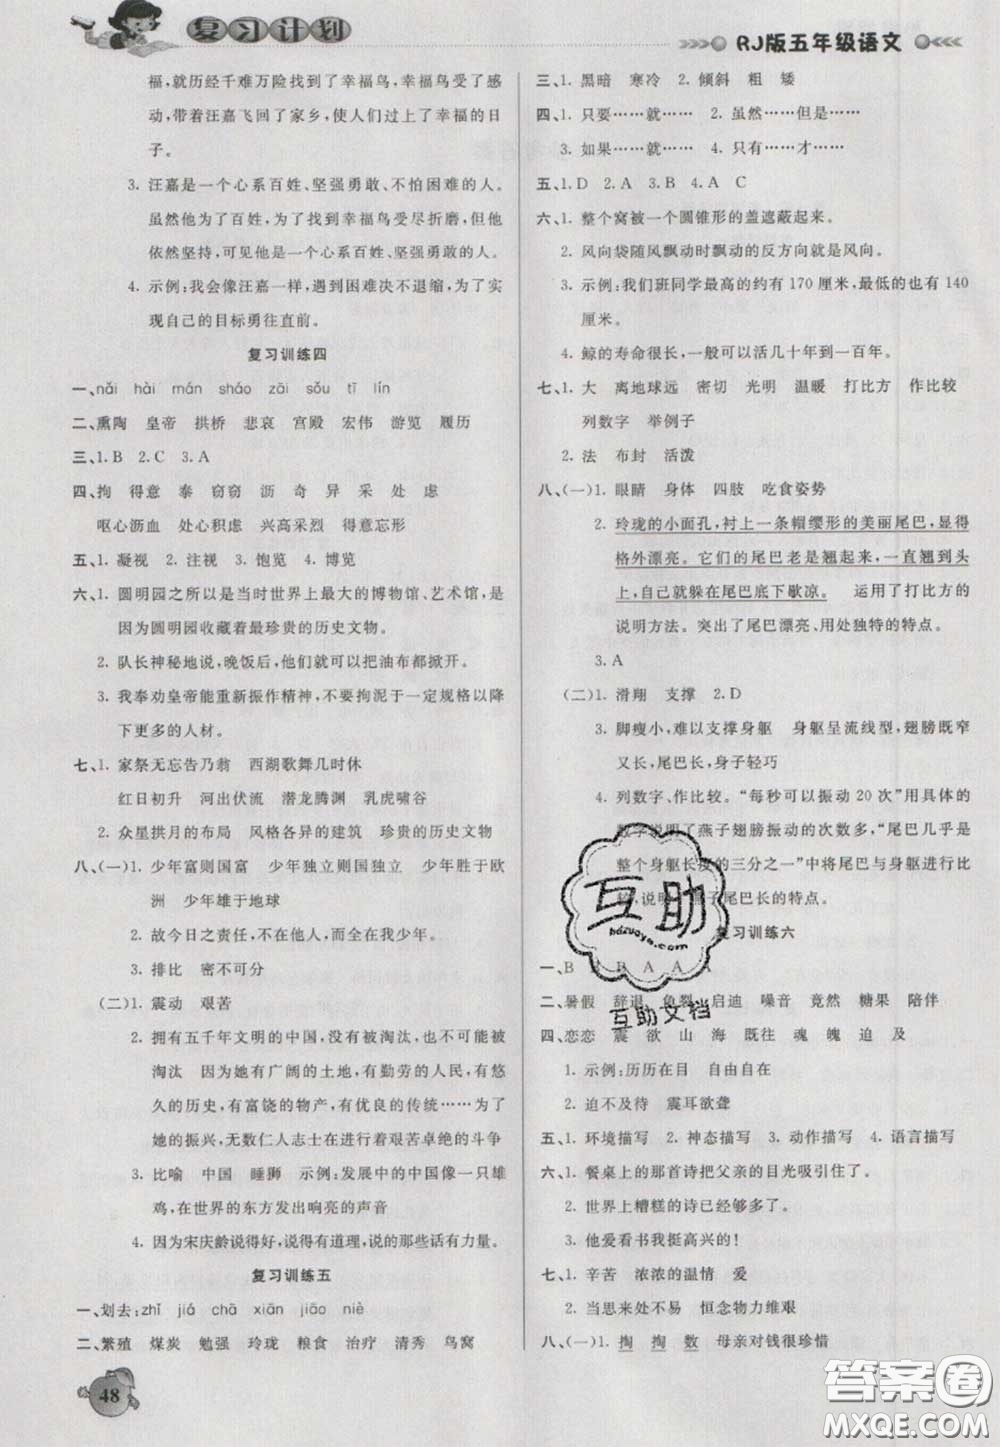 复习计划
RJ版五年级语文
福,就历经千难万险找到了幸福鸟,幸福鸟受了感
动,带着汪嘉飞回了家乡,使人们过上了幸福的日
子。
3. 汪嘉是一个心系百姓、坚强勇敢、不怕困难的人。
虽然他为了百姓,为了找到幸福鸟受尽折磨,但他
依然坚持,可见他是一个心系百姓、坚强勇敢的人。
4. 示例:我会像汪嘉一样,遇到困难决不退缩,为了实
现自己的目标勇往直前。
复习训练四
一、nǎi hài mán sháo zāi sǒu tī lín
二、熏陶 皇帝 拱桥 悲哀 宫殿 宏伟 游览 履历
三、1. B 2. C 3. A
四、拘 得意 泰 窃窃 沥 奇 异 采 处 虑
呕心沥血 处心积虑 兴高采烈 得意忘形
五、1. 凝视 2. 注视 3. 饱览 4. 博览
六、1. 圆明园之所以是当时世界上最大的博物馆、艺术馆,是
因为圆明园收藏着最珍贵的历史文物。
2. 队长神秘地说,晚饭后,他们就可以把油布都掀开。
3. 我奉劝皇帝能重新振作精神,不要拘泥于一定规格以降
下更多的人材。
七、1. 家祭无忘告乃翁 西湖歌舞几时休
红日初升 河出伏流 潜龙腾渊 乳虎啸谷
2. 众星拱月的布局 风格各异的建筑 珍贵的历史文物
八、(一)1. 少年富则国富 少年独立则国独立 少年胜于欧
洲 少年雄于地球
2. 故今日之责任,不在他人,而全在我少年。
3. 排比 密不可分
(二)1. 震动 艰苦
2. 拥有五千年文明的中国,没有被淘汰,也不可能被
淘汰 因为它有广阔的土地,有勤劳的人民,有悠
久的历史,有富饶的物产,有优良的传统……为了
她的振兴,无数仁人志士在进行着艰苦卓绝的斗争
3. 比喻 中国 睡狮 示例:崛起中的中国像一只雄
鸡,在世界的东方发出响亮的声音
4. 因为宋庆龄说得好,说得有道理,说的很有力量。
复习训练五
一、划去:zhǐ jiá chā xiān jiāo niè
二、繁殖 煤炭 勉强 玲珑 粮食 治疗 清秀 鸟窝
48
三、1. 黑暗 寒冷 2. 倾斜 粗 矮
四、1. 只要……就…… 2. 虽然……但是……
3. 如果……就…… 4. 只有……才……
五、1. D 2. A 3. B 4. A C
六、1. 整个窝被一个圆锥形的盖遮蔽起来。
2. 风向袋随风飘动时飘动的反方向就是风向。
3. 示例:我们班同学最高的约有 170 厘米,最低的也有 140
厘米。
4. 鲸的寿命很长,一般可以活几十年到一百年。
七、1. 大 离地球远 密切 光明 温暖 打比方 作比较
列数字 举例子
2. 法 布封 活泼
八、(一)1. 眼睛 身体 四肢 吃食姿势
2. 玲珑的小面孔,衬上一条帽缨形的美丽尾巴,显得
格外漂亮。它们的尾巴老是翘起来,一直翘到头
上,自己就躲在尾巴底下歇凉。 运用了打比方的
说明方法。突出了尾巴漂亮、用处独特的特点。
3. A
(二)1. 滑翔 支撑 2. D
3. 脚瘦小,难以支撑身躯 身躯呈流线型,翅膀既窄
又长,尾巴长,身子轻巧
4. 列数字、作比较。“每秒可以振动 20 次”用具体的
数字说明了燕子翅膀振动的次数多,“尾巴几乎是
整个身躯长度的三分之一”中将尾巴与身躯进行比
较,说明了尾巴长的特点。
复习训练六
一、B B A A A
二、暑假 辞退 龟裂 启迪 噪音 竟然 糖果 陪伴
四、恋恋 震 欲 山 海 既往 魂 魄 迫 及
1. 示例:历历在目 自由自在
2. 迫不及待 震耳欲聋
五、1. 环境描写 2. 神态描写 3. 动作描写 4. 语言描写
六、1. 餐桌上的那首诗把父亲的目光吸引住了。
2. 世界上糟糕的诗已经够多了。
3. 他爱看书我挺高兴的!
七、1. 辛苦 浓浓的温情 爱
2. 当思来处不易 恒念物力维艰
八、(一)1. 掏 掏 数 母亲对钱很珍惜
互助
hdzuoye.com
互助文档
答案圈
MXQE.COM